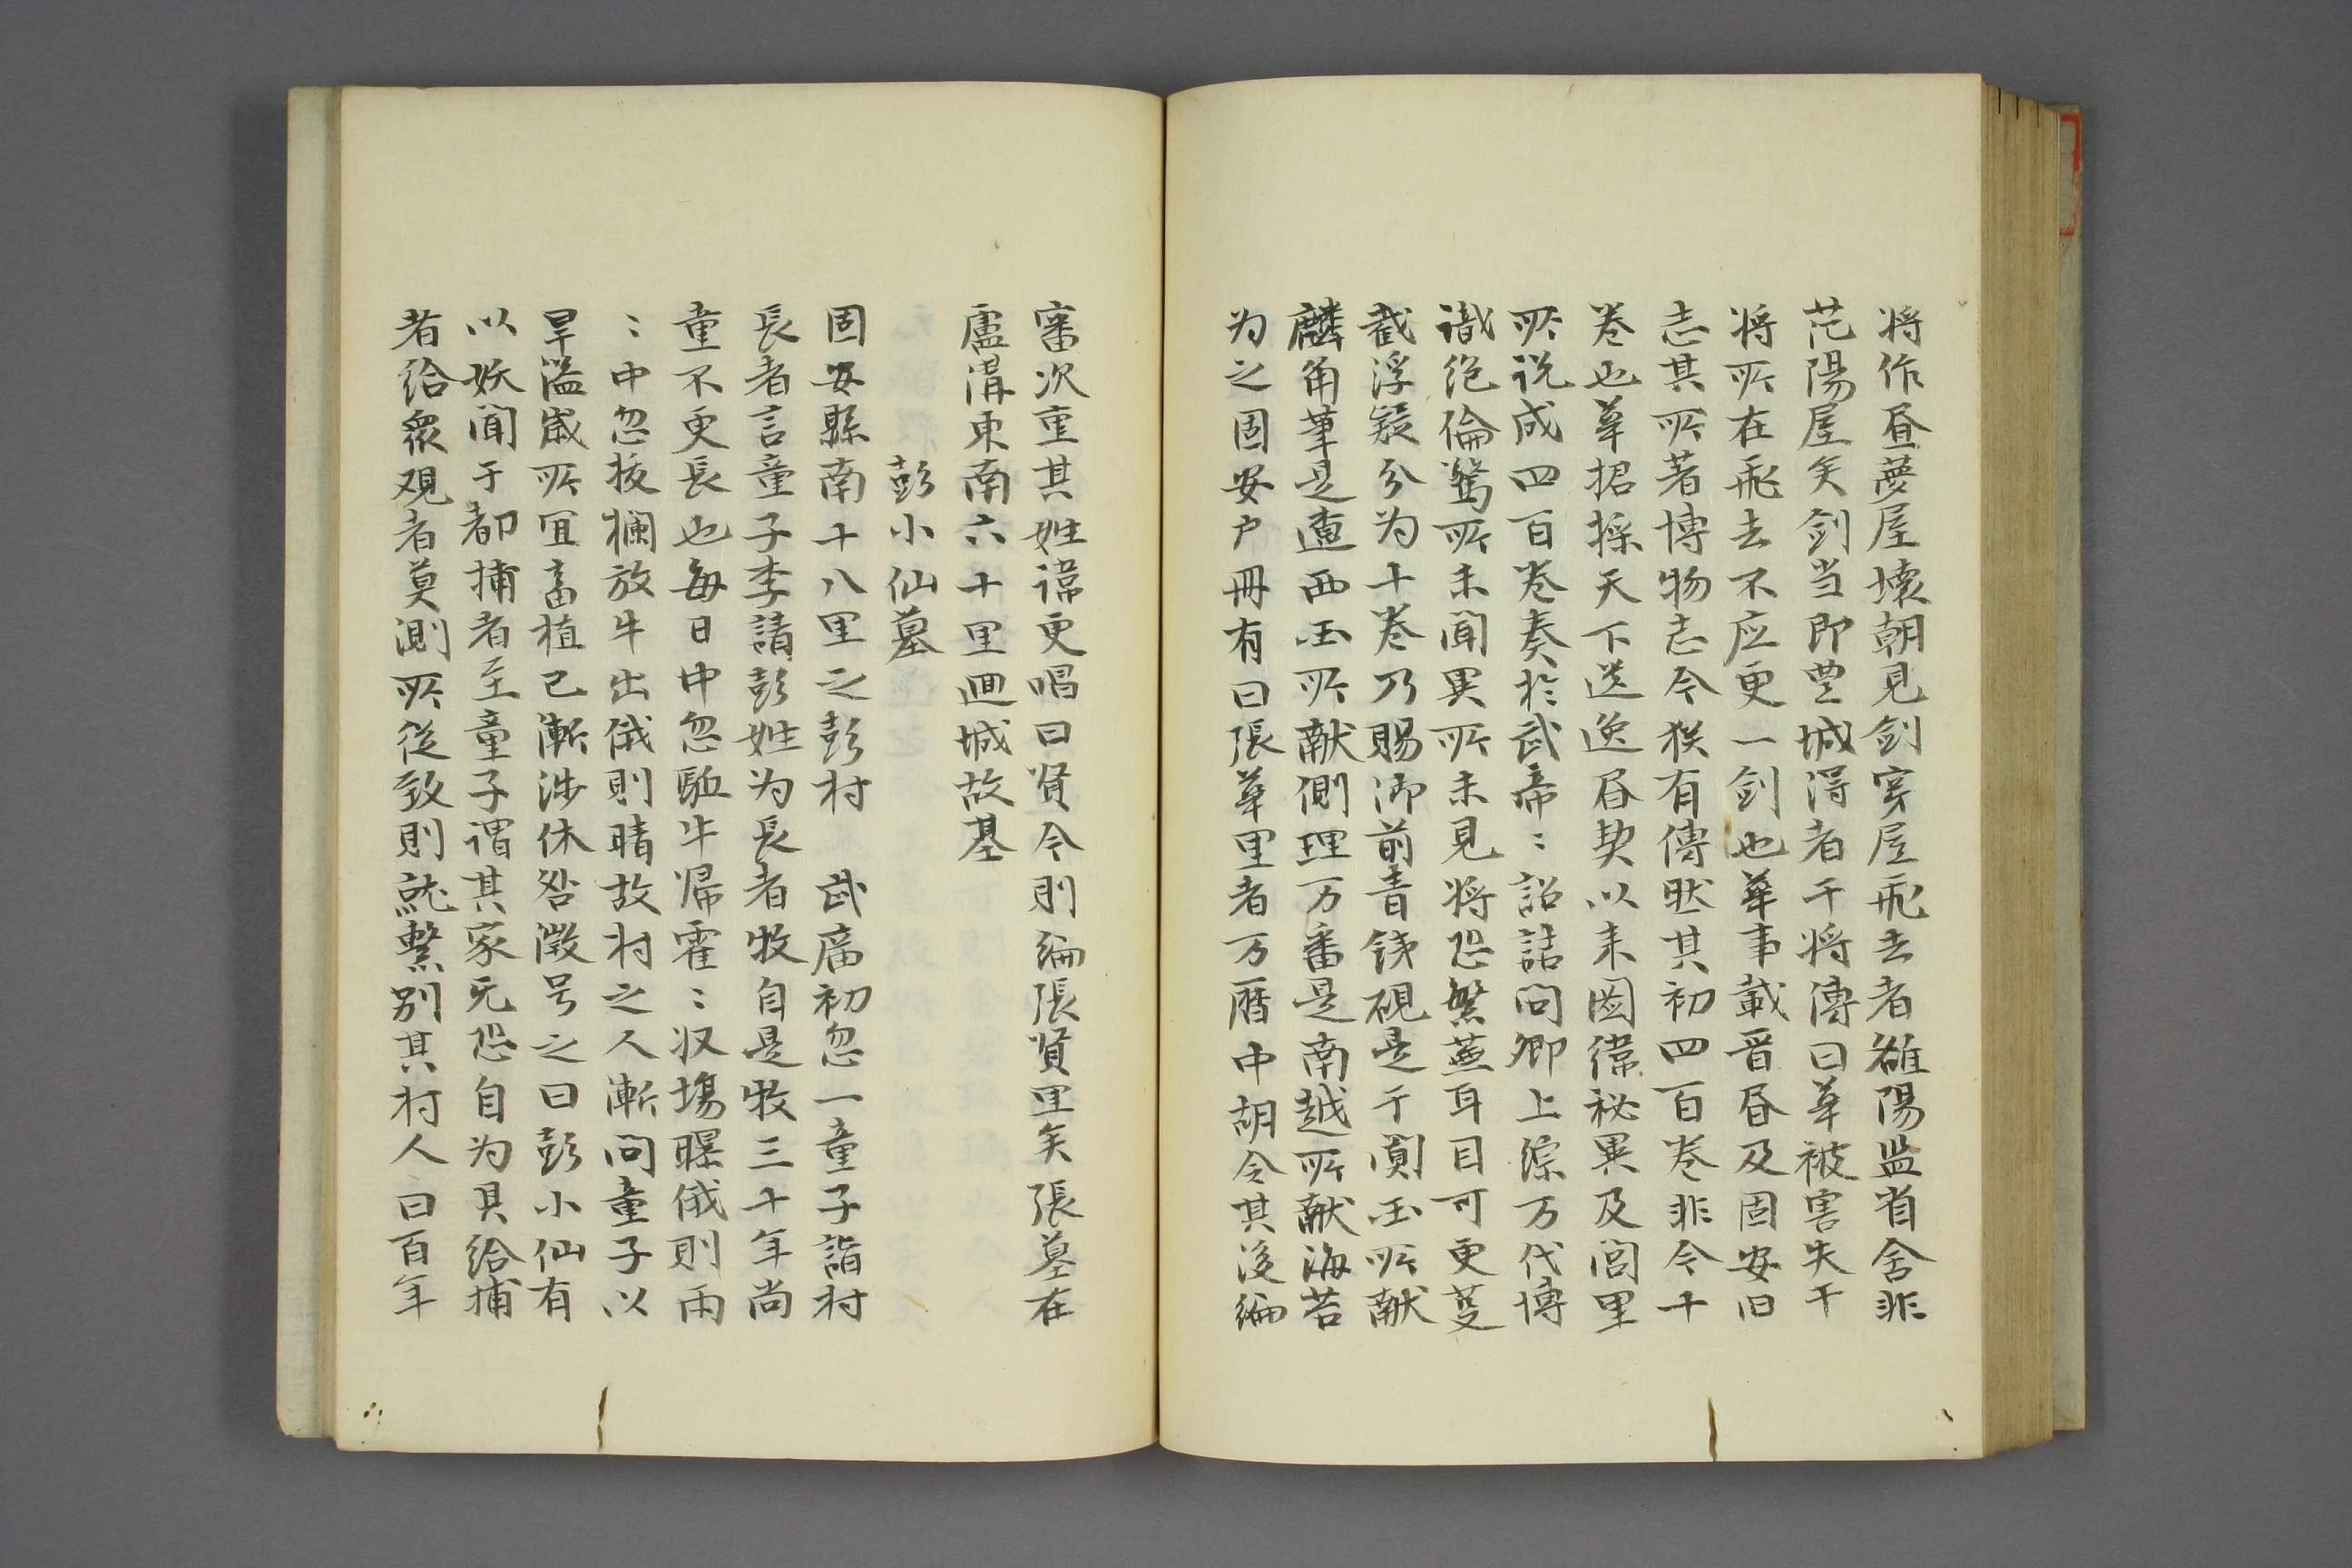 将作昼夢屋壊朝見剑穿屋飛去者雒陽监省舍非
范陽屋矣剑当即豐城淂者干将傳曰華被害失干
将所在飛去不应更一剑也華事載晋昼及固安旧
志其所著博物志今猴有傳然其初四百卷非今十
卷也華捃採天下遗逸昼契以来图纬祕異及闾里
所说成四百卷奏於武帝〻詔詰问卿上综万代博
識绝倫驚所未聞異所未見将恐繁蕪耳目可更芟
截浮疑分为十卷乃賜御前青鉄硯是于阗国所献
麟角筆是遼西国所献側理万番是南越所献海苔
为之固安户冊有曰張華里者万暦中胡令其後编
審次重其姓諱更唱曰贤令則编張贤里矣張墓在
盧溝東南六十里迴城故基
彭小仙墓
固安縣南十八里之彭村　武廟初忽一童子詣村
長者言童子李請彭姓为長者牧自是牧三十年尚
童不更長也每日中忽駈牛帰霍〻収場曝俄則雨
〻中忽授欄放牛出俄則晴故村之人漸问童子以
旱溢歲所宜畜植已漸涉休咎徴号之曰彭小仙有
以妖聞于都捕者至童子谓其家无恐自为具给捕
者给衆观者莫测所從致則就繫别其村人曰百年